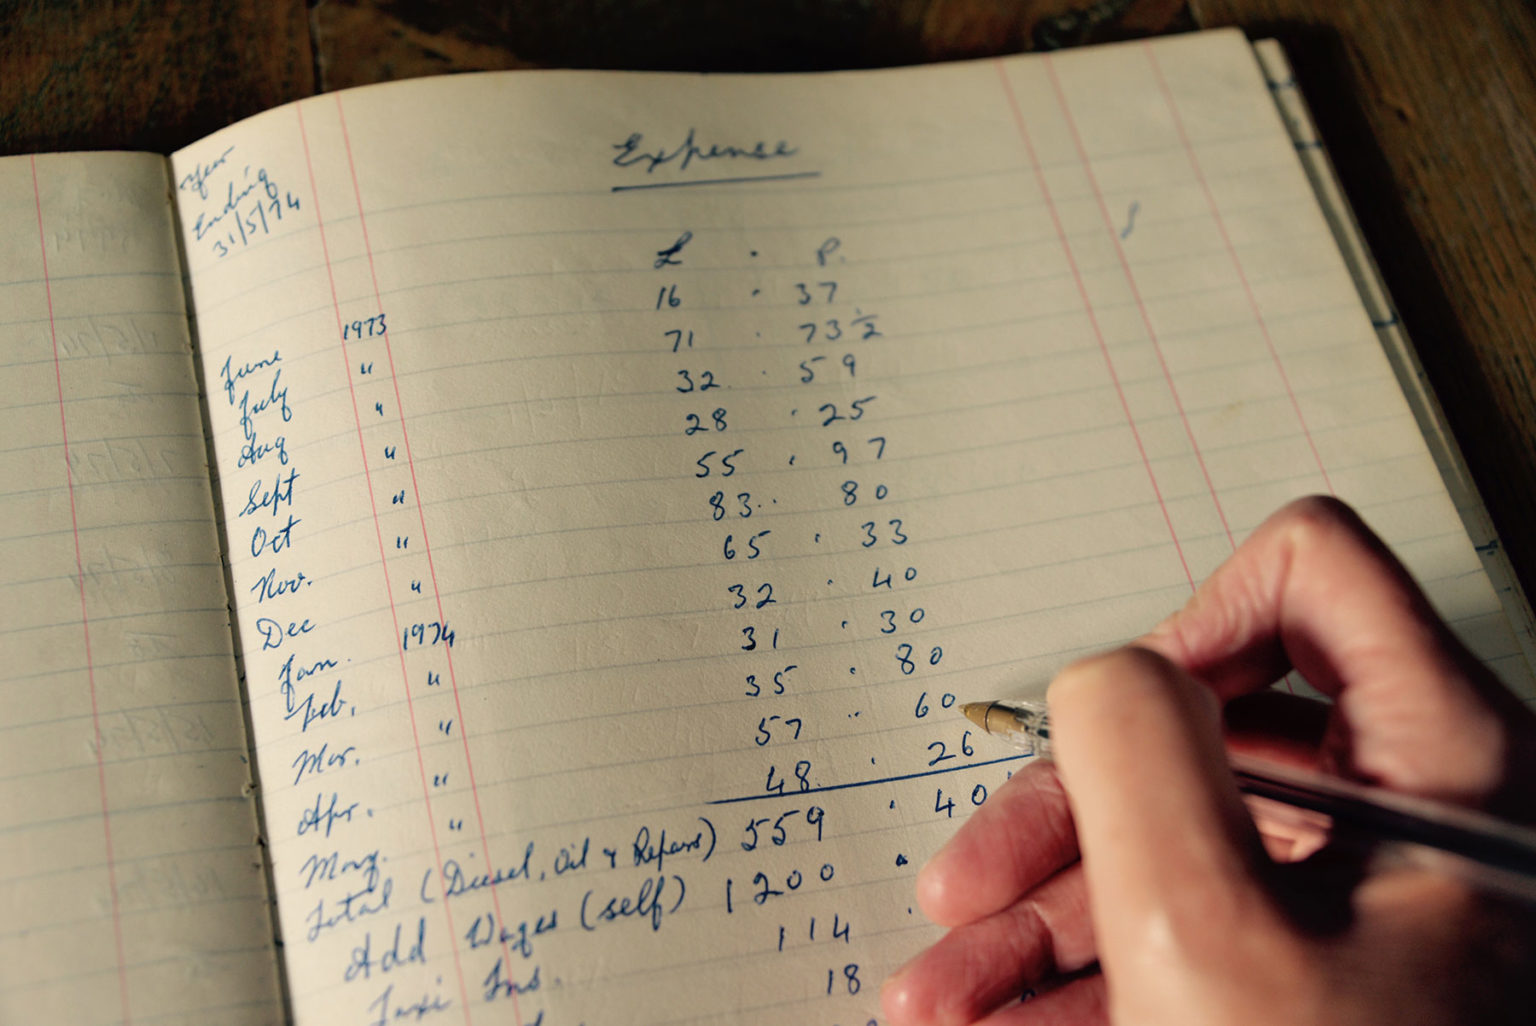 Year
Ending
31/5/74
Expense
£ . P.
June 1973 16 . 37
July " 71 . 73½
Aug " 32 . 59
Sept " 28 . 25
Oct " 55 . 97
Nov. " 83 . 80
Dec " 65 . 33
Jan. 1974 32 . 40
Feb. " 31 . 30
Mar. " 35 . 80
Apr. " 57 . 60
May. " 48 . 26
Total (Diesel, Oil & Repairs) 559 . 40
Add Wages (self) 1200 .
Taxi Ins. 114 .
18